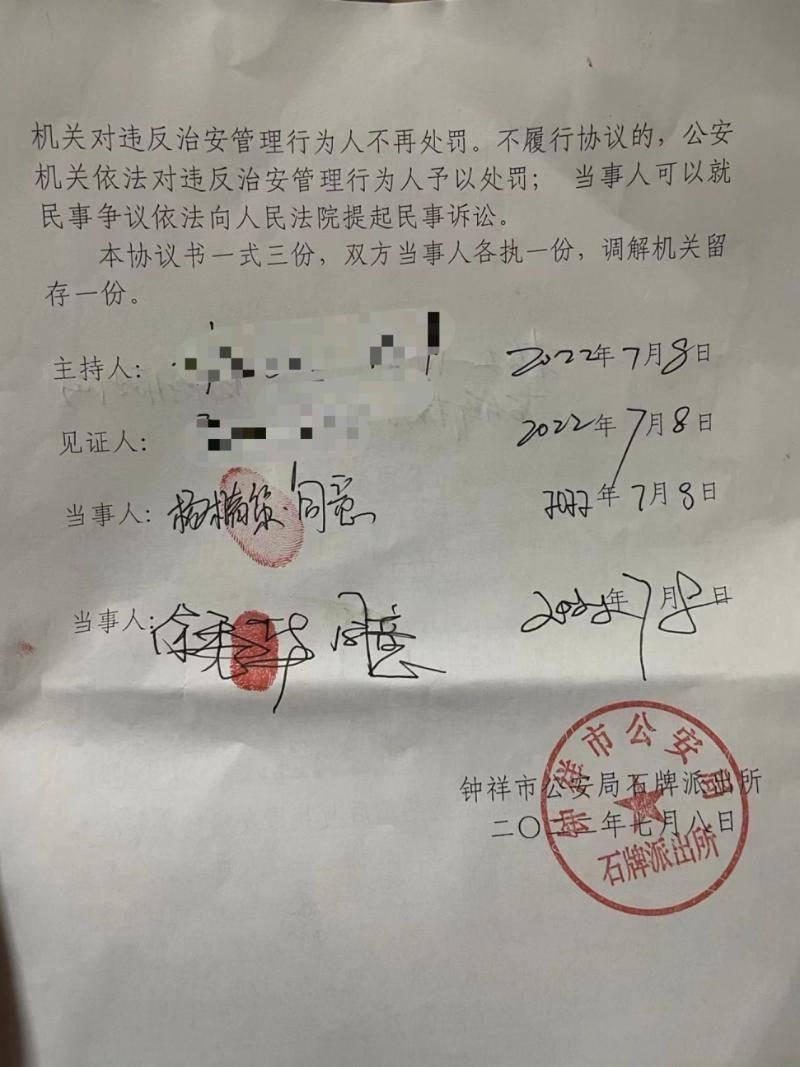 机关对违反治安管理行为人不再处罚。不履行协议的，公安
机关依法对违反治安管理行为人予以处罚； 当事人可以就
民事争议依法向人民法院提起民事诉讼。
本协议书一式三份，双方当事人各执一份，调解机关留
存一份。
主持人： 2022年7月8日
见证人： 2022年7月8日
当事人：杨楠策 同意 2022年7月8日
当事人： 同意 2022年7月8日
钟祥市公安局石牌派出所
二〇二二年七月八日
钟祥市公安局
石牌派出所